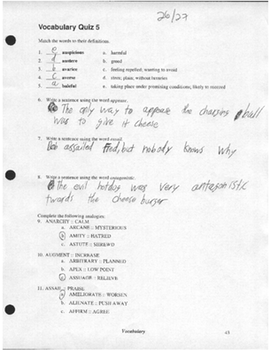 26/27
Vocabulary Quiz 5
Match the words to their definitions.
1. e auspicious a. harmful
2. d austere b. greed
3. b avarice c. feeling repelled; wanting to avoid
4. c averse d. stern; plain; without luxuries
5. a baleful e. taking place under promising conditions; likely to succeed
6. Write a sentence using the word appease.
The only way to appease the charging bull
was to give it cheese
7. Write a sentence using the word assail.
I assailed Fred, but nobody knows why
8. Write a sentence using the word antagonistic.
The evil hotdog was very antagonistic
towards the cheese burger.
Complete the following analogies:
9. ANARCHY : CALM
a. ARCANE : MYSTERIOUS
b. AMITY : HATRED
c. ASTUTE : SHREWD
10. AUGMENT : INCREASE
a. ARBITRARY : PLANNED
b. APEX : LOW POINT
c. ASSUAGE : RELIEVE
11. ASSAIL : PRAISE
a. AMELIORATE : WORSEN
b. ALIENATE : PUSH AWAY
c. AFFIRM : AGREE
Vocabulary